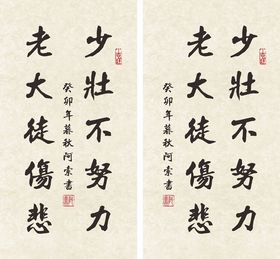 少壯不努力
老大徒傷悲
癸卯年暮秋阿索書
少壯不努力
老大徒傷悲
癸卯年暮秋阿索書